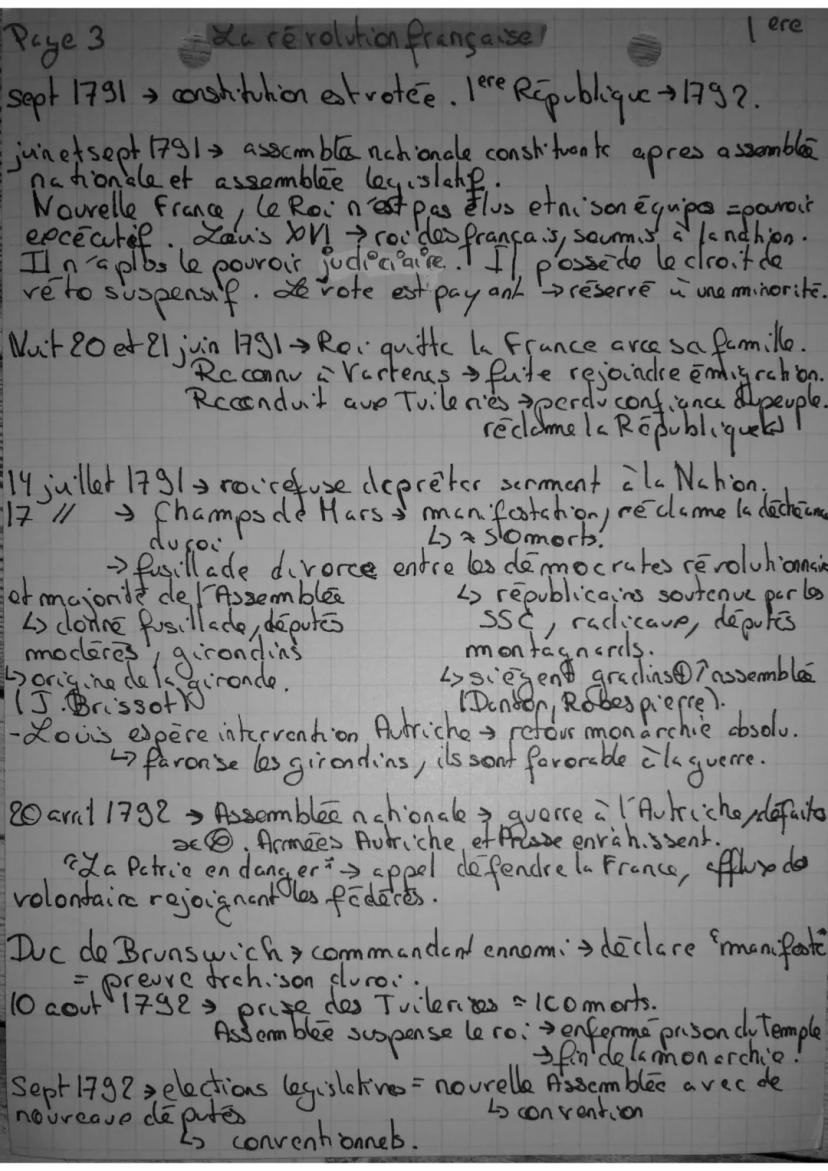 Page 3 La révolution française 1 ere
Sept 1791 → constitution est votée. 1ere République → 1792.
juin et sept 1791 → assemblée nationale constituante apres assemblée
nationale et assemblée legislatif.
Nouvelle France, le Roi n'est pas élus et ni son équipe = pouvoir
excécutif. Louis XVI → roi des français, soumis à la nation.
Il n'a plus le pouvoir judiciaire. Il possède le droit de
véto suspensif. Le vote est payant → réservé à une minorité.
Nuit 20 et 21 juin 1791 → Roi quitte la France avec sa famille.
Reconnu à Varennes → fuite rejoindre émigration.
Reconduit aux Tuileries → perdu confiance du peuple.
réclame la République
14 juillet 1791 → roi refuse de prêter serment à la Nation.
17 // → Champs de Mars → manifestation, réclame la déchéance
du roi ↳ ≈ 50 morts.
→ fusillade divorce entre les démocrates révolutionnaire
et majorité de l'Assemblée ↳ républicains soutenue par les
↳ donné fusillade, députés SSC, radicaux, députés
modérés, girondins montagnards.
↳ origine de la gironde. ↳ siègent gradins ⊕ ↗ assemblée
(J. Brissot) (Danton, Robespierre).
- Louis espère intervention Autriche → retour monarchie absolu.
↳ favorise les girondins, ils sont favorable à la guerre.
20 avril 1792 → Assemblée nationale → guerre à l'Autriche, défaite
. Armées Autriche et Prusse envahissent.
"La Patrie en danger" → appel défendre la France, afflux de
volontaire rejoignant les fédérés.
Duc de Brunswich → commandant ennemi → déclare "manifeste"
= preuve trahison du roi.
10 aout 1792 → prise des Tuileries ≈ 100 morts.
Assemblée suspense le roi → enfermé prison du Temple
→ fin de la monarchie !
Sept 1792 → elections legislatives = nouvelle Assemblée avec de
nouveaux députés ↳ convention
↳ conventionnels.